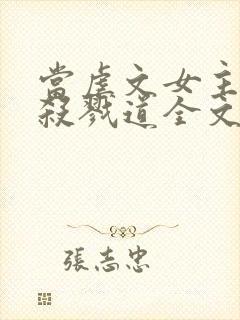 當虐文女主
殺戮道全文
張志忠